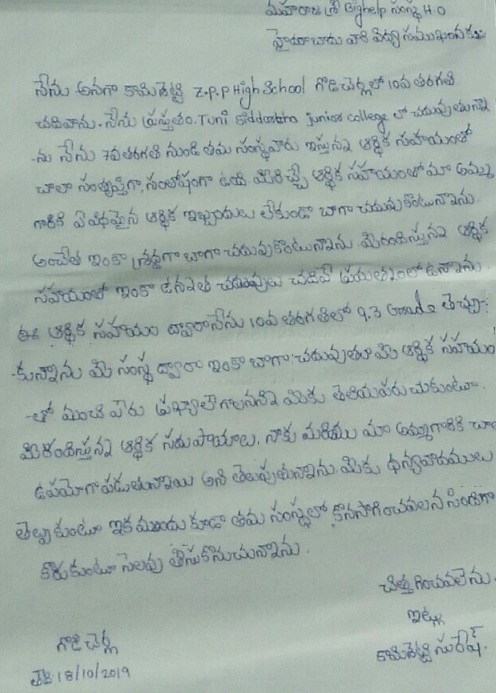 మహారాజశ్రీ Bighelp సంస్థ H.O
హైదరాబాదు వారి దివ్య సముఖంనకు
నేను అనగా కామిరెడ్డి Z.P.P High School గొడిచెర్లలో 10వ తరగతి
చదివాను. నేను ప్రస్తుతం Tuni Siddartha junior college లో చదువుతున్నా
-ను నేను 7వ తరగతి నుండి తమ సంస్థవారు ఇస్తున్న ఆర్థిక సహాయంతో
చాలా సంతృప్తిగా, సంతోషంగా ఉండి మీరిచ్చే ఆర్థిక సహాయంతో మా అమ్మ
గారికి ఏవిధమైన ఆర్థిక ఇబ్బందులు లేకుండా బాగా చదువుకొంటున్నాను.
అంచేత ఇంకా శ్రద్ధగా బాగా చదువుకొంటున్నాను మీరందిస్తున్న ఆర్థిక
సహాయంతో ఇంకా ఉన్నత చదువులు చదివే ప్రయత్నంలో ఉన్నాను.
ఈ ఆర్థిక సహాయం ద్వారా నేను 10వ తరగతిలో 9.3 Grade తెచ్చు-
-కున్నాను మీ సంస్థ ద్వారా ఇంకా బాగా చదువుతూ మీ ఆర్థిక సహాయం
-తో మంచి పేరు ప్రఖ్యాతిగాలనని మీకు తెలియపరుచుకుంటూ
మీరందిస్తున్న ఆర్థిక సదుపాయాలు, నాకు మరియు మా అమ్మగారికి చాల
ఉపయోగపడుతున్నాయి అని తెలుపుతున్నాను మీకు ధన్యవాదములు
తెల్పుకుంటూ ఇక ముందు కూడా తమ సంస్థలో కొనసాగించవలసిందిగా
కోరుకుంటూ సెలవు తీసుకొనుచున్నాను.
చిత్తగించవలెను.
ఇట్లు
కామిరెడ్డి సురేష్.
గొడిచెర్ల
తేది 18/10/2019